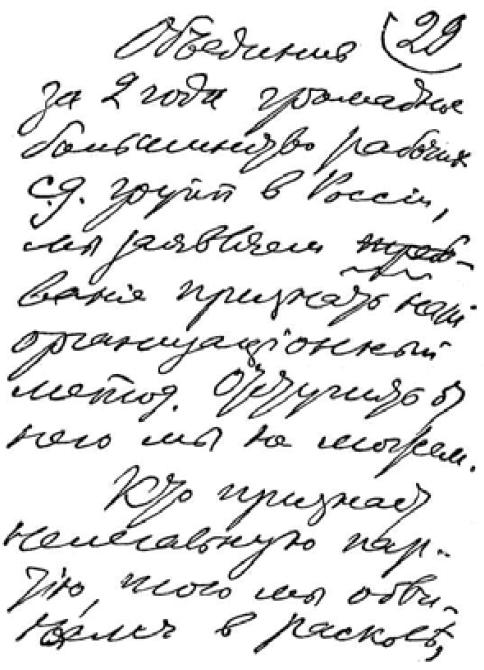 Объединив 29
за 2 года громадное
большинство рабочих
с.д. групп в Россіи,
мы заявляем треб-
ваніе признать наш
организаціонный
метод. Отступить от
него мы не можем.
Кто признает
нелегальную пар-
тію, того мы обви-
няли в расколѣ,